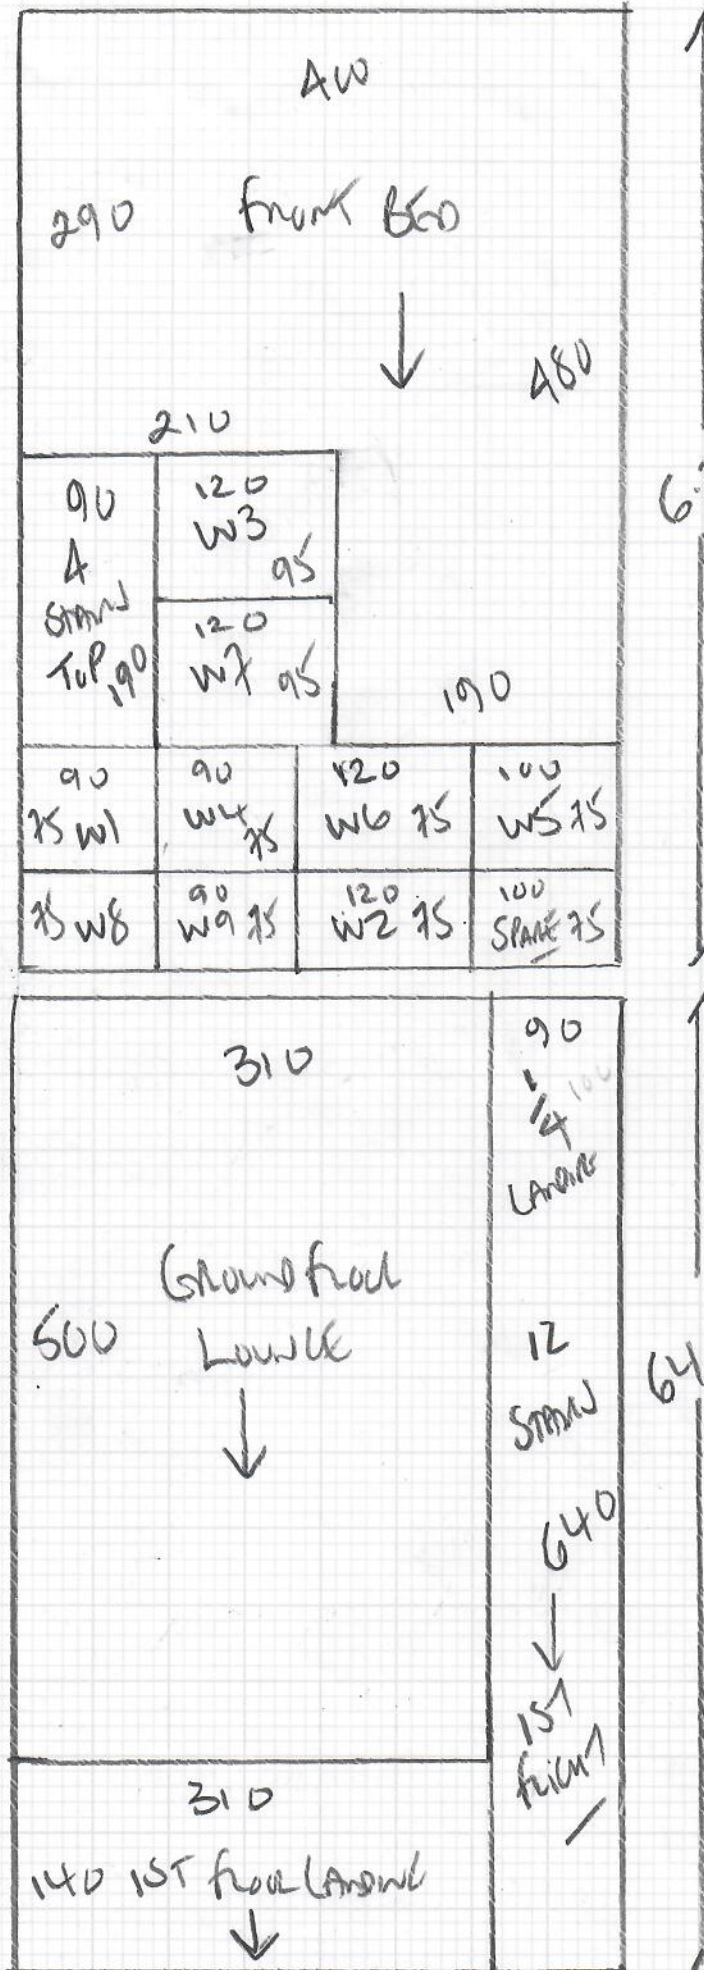 400
290 FRONT BED
480
210
90
4
STAIRS
TOP 190
120
W3
95
120
W7 95
190
6.
90
75 W1
90
W4 75
120
W6 75
100
W5 75
75 W8
90
W9 75
120
W2 75
100
SPARE 75
310
90
1/4 100
LANDING
GROUND FLOOR
500 LOUNGE
12
STAIRS
64
640
1ST
FLIGHT
310
140 1ST FLOOR LANDING